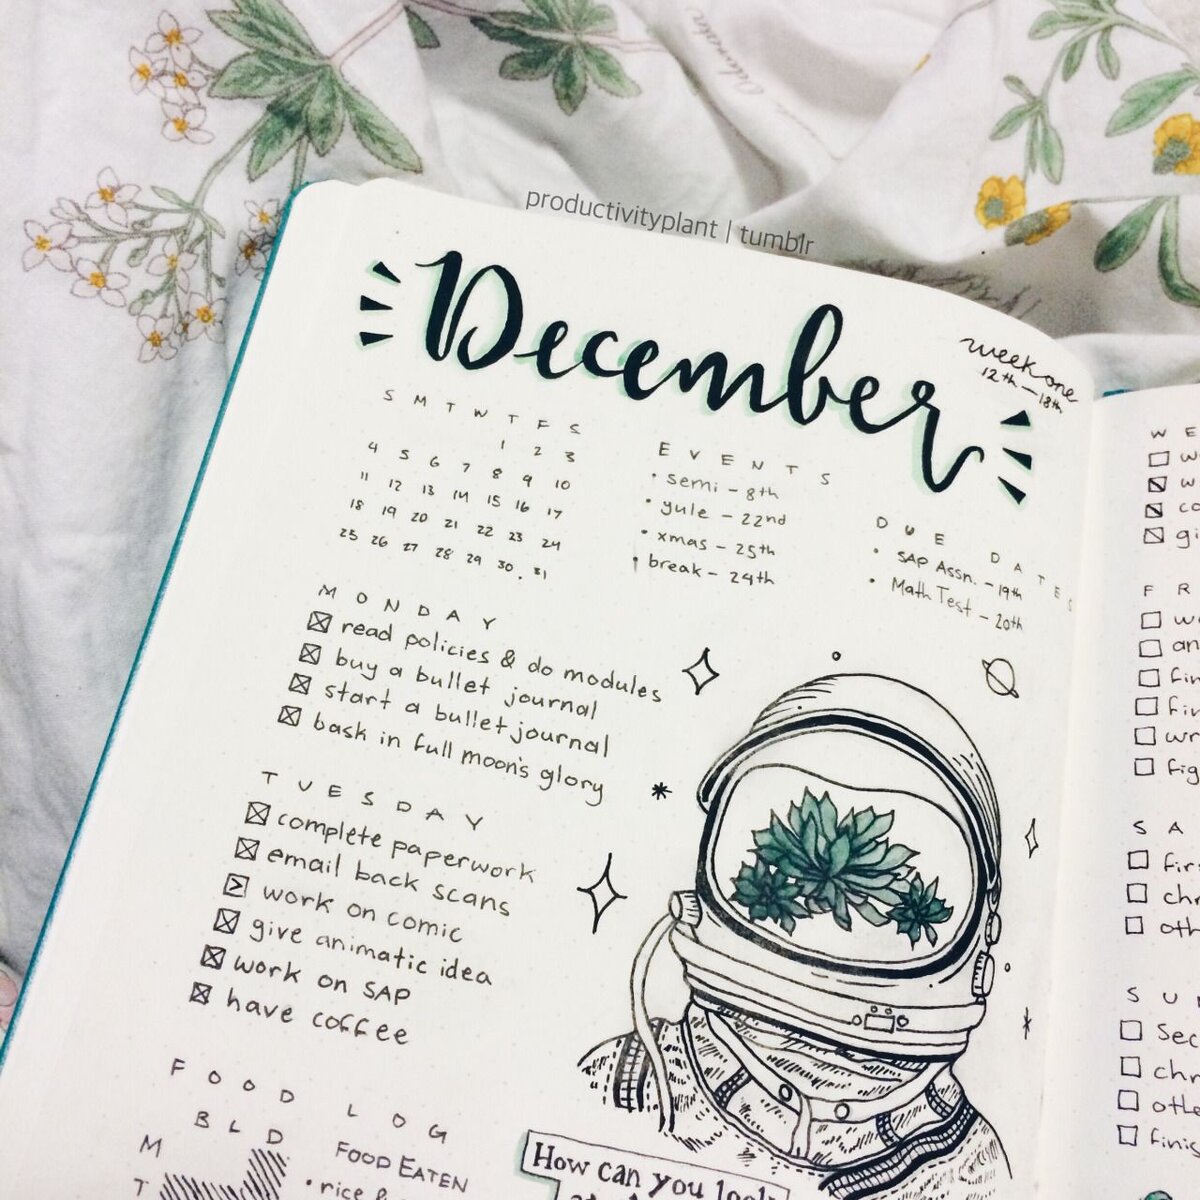 productivityplant | tumblr
December
week one
12th - 18th
S M T W T F S
1 2 3
4 5 6 7 8 9 10
11 12 13 14 15 16 17
18 19 20 21 22 23 24
25 26 27 28 29 30 31
EVENTS
• semi - 8th
• yule - 22nd
• xmas - 25th
• break - 24th
DUE DATES
• SAP Assn. - 19th
• Math Test - 20th
MONDAY
read policies & do modules
buy a bullet journal
start a bullet journal
bask in full moon's glory
TUESDAY
complete paperwork
email back scans
work on comic
give animatic idea
work on SAP
have coffee
FOOD LOG
B L D
FOOD EATEN
M
• rice
T
How can you look